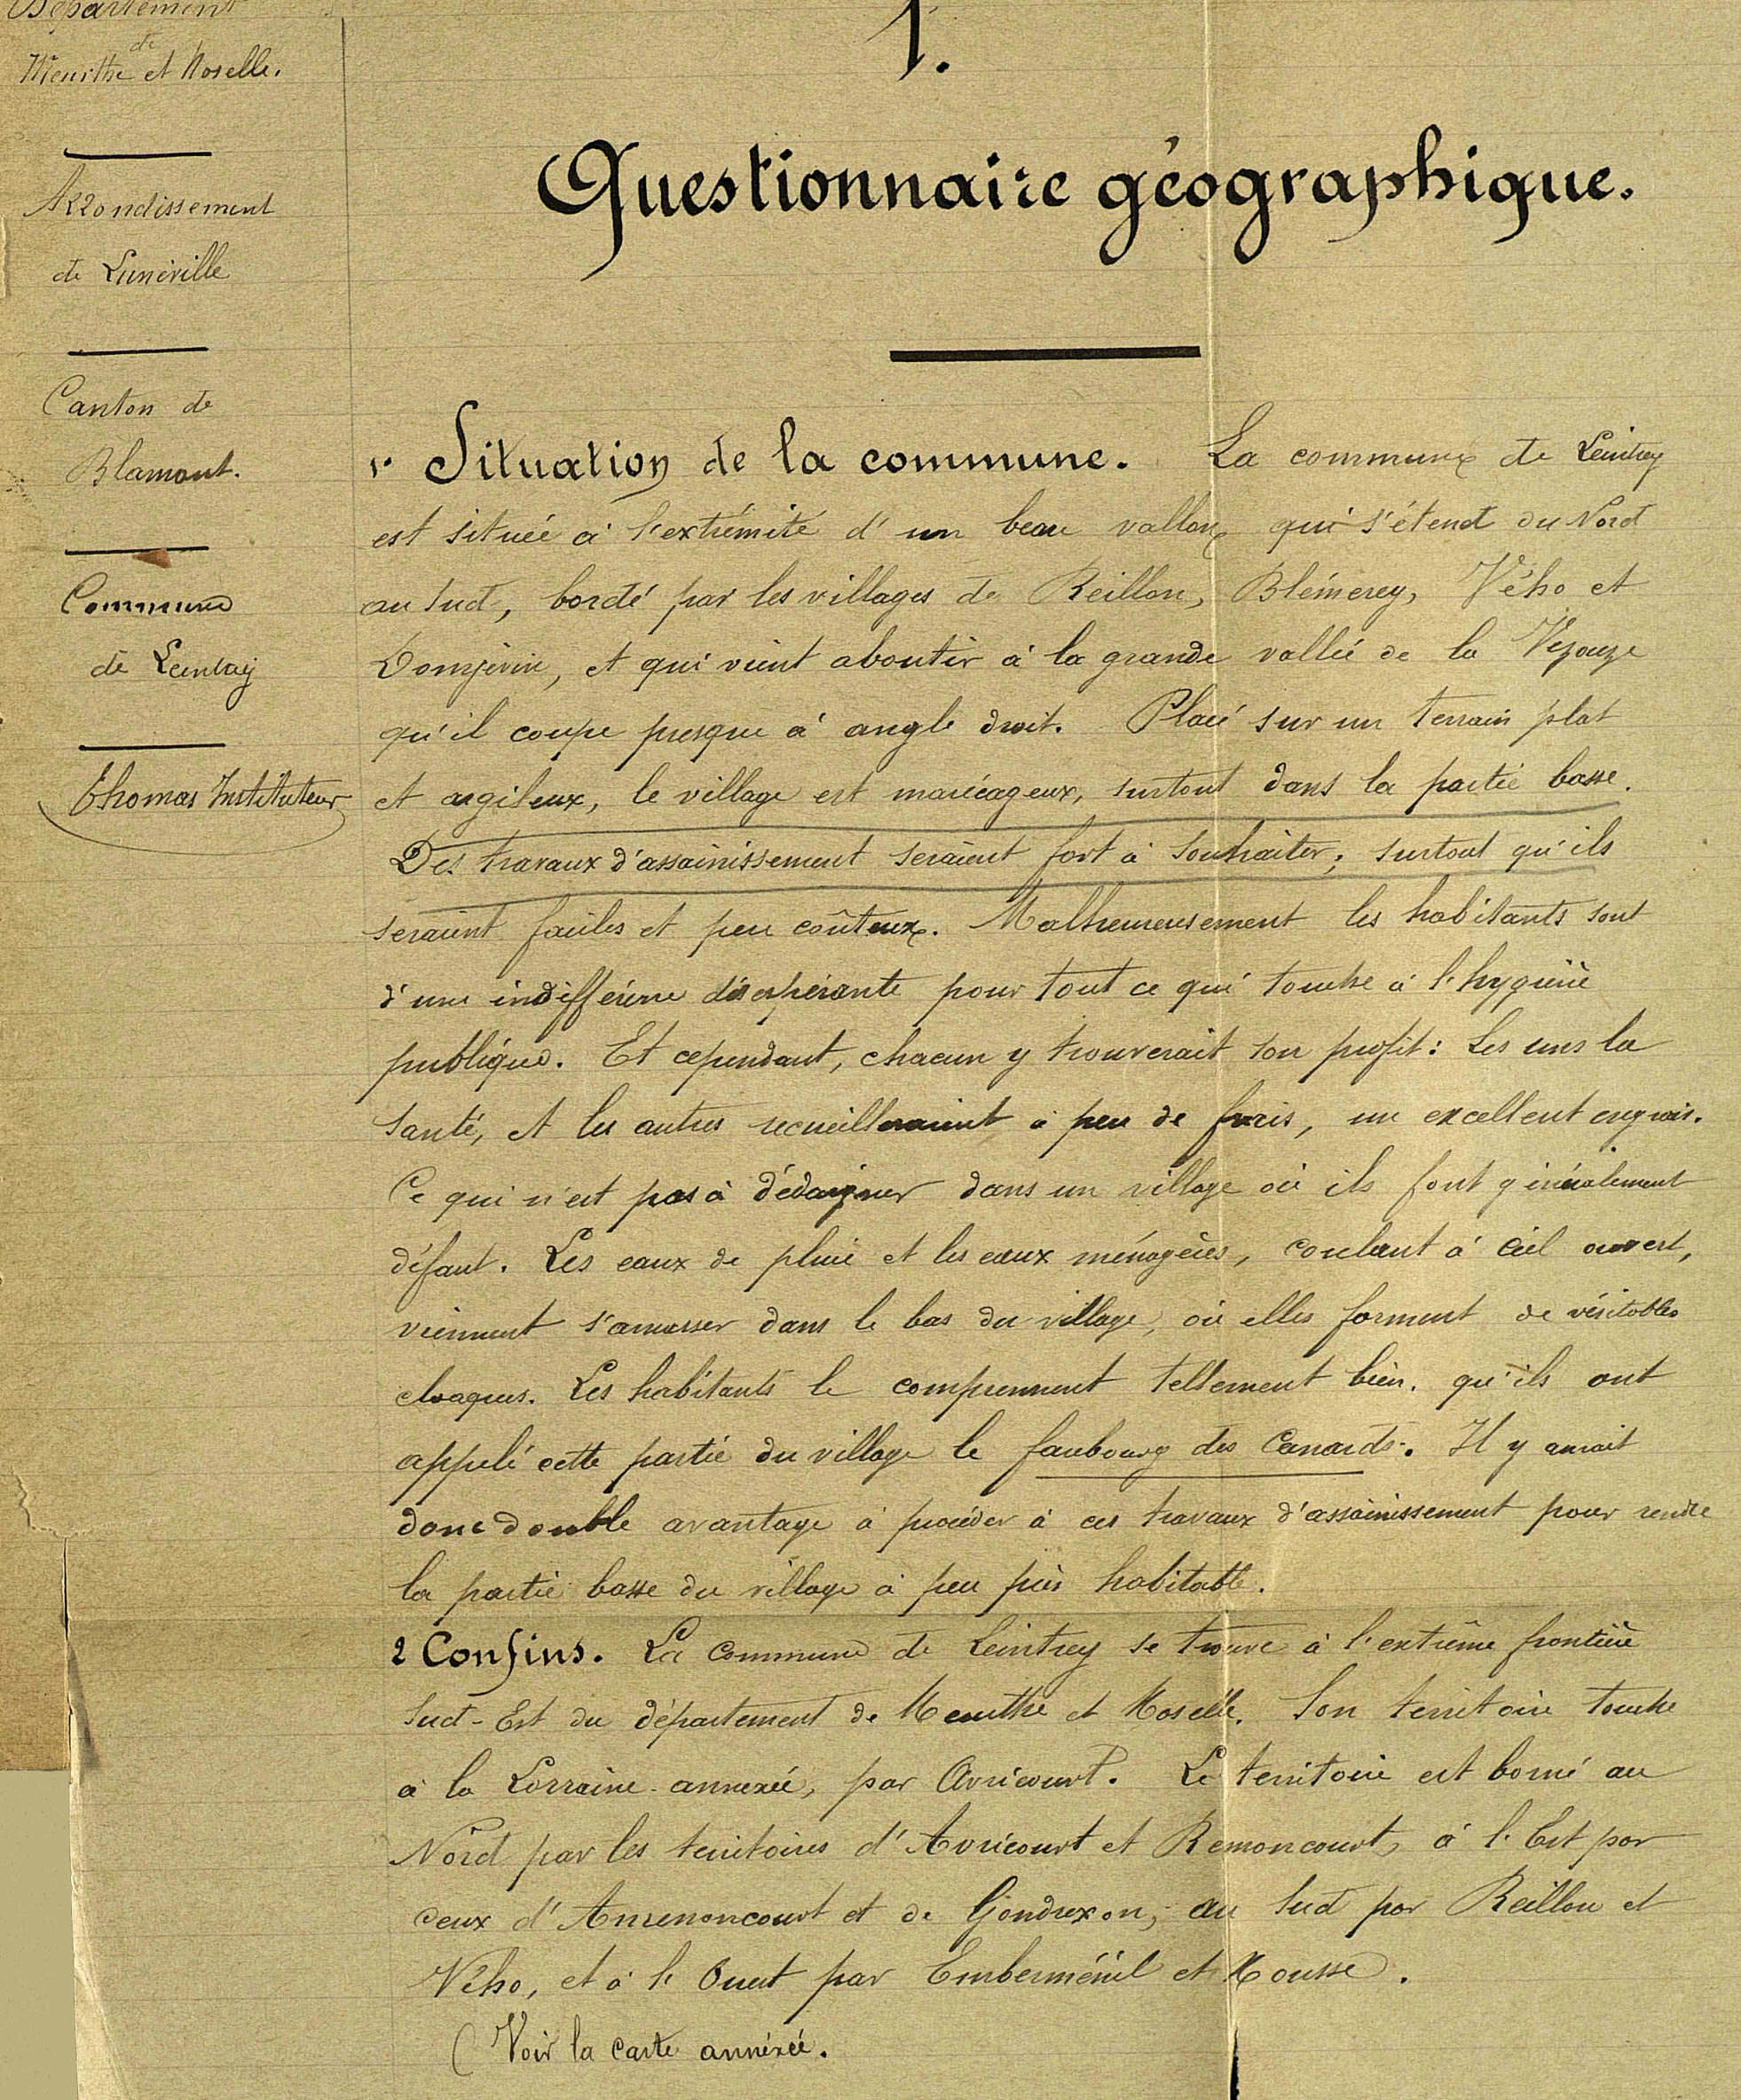 Département
de
Meurthe et Moselle.
Arrondissement
de Lunéville
Canton de
Blamont.
Commune
de Leintrey
Thomas Instituteur
1.
Questionnaire géographique.
1° Situation de la commune. La commune de Leintrey
est située à l'extrémité d'un beau vallon qui s'étend du Nord
au Sud, bordé par les villages de Reillon, Blémerey, Vého et
Domjevin, et qui vient aboutir à la grande vallée de la Vezouze
qu'il coupe presque à angle droit. Placé sur un terrain plat
et argileux, le village est marécageux, surtout dans la partie basse.
Des travaux d'assainissement seraient fort à souhaiter; surtout qu'ils
seraient faciles et peu coûteux. Malheureusement les habitants sont
d'une indifférence désespérante pour tout ce qui touche à l'hygiène
publique. Et cependant, chacun y trouverait son profit: Les uns la
santé, et les autres recueilleraient à peu de frais, un excellent engrais.
Ce qui n'est pas à dédaigner dans un village où ils font généralement
défaut. Les eaux de pluie et les eaux ménagères, coulant à ciel ouvert,
viennent s'amasser dans le bas du village, où elles forment de véritables
cloaques. Les habitants le comprennent tellement bien, qu'ils ont
appelé cette partie du village le faubourg des Canards. Il y aurait
donc double avantage à procéder à ces travaux d'assainissement pour rendre
la partie basse du village à peu près habitable.
2 Confins. La Commune de Leintrey se trouve à l'extrême frontière
Sud-Est du département de Meurthe et Moselle. Son territoire touche
à la Lorraine-annexée, par Avricourt. Le territoire est borné au
Nord par les territoires d'Avricourt et Remoncourt, à l'Est par
ceux d'Amenoncourt et de Gondrexon, au Sud par Reillon et
Vého, et à l'Ouest par Emberménil et Xousse.
(Voir la carte annexée.